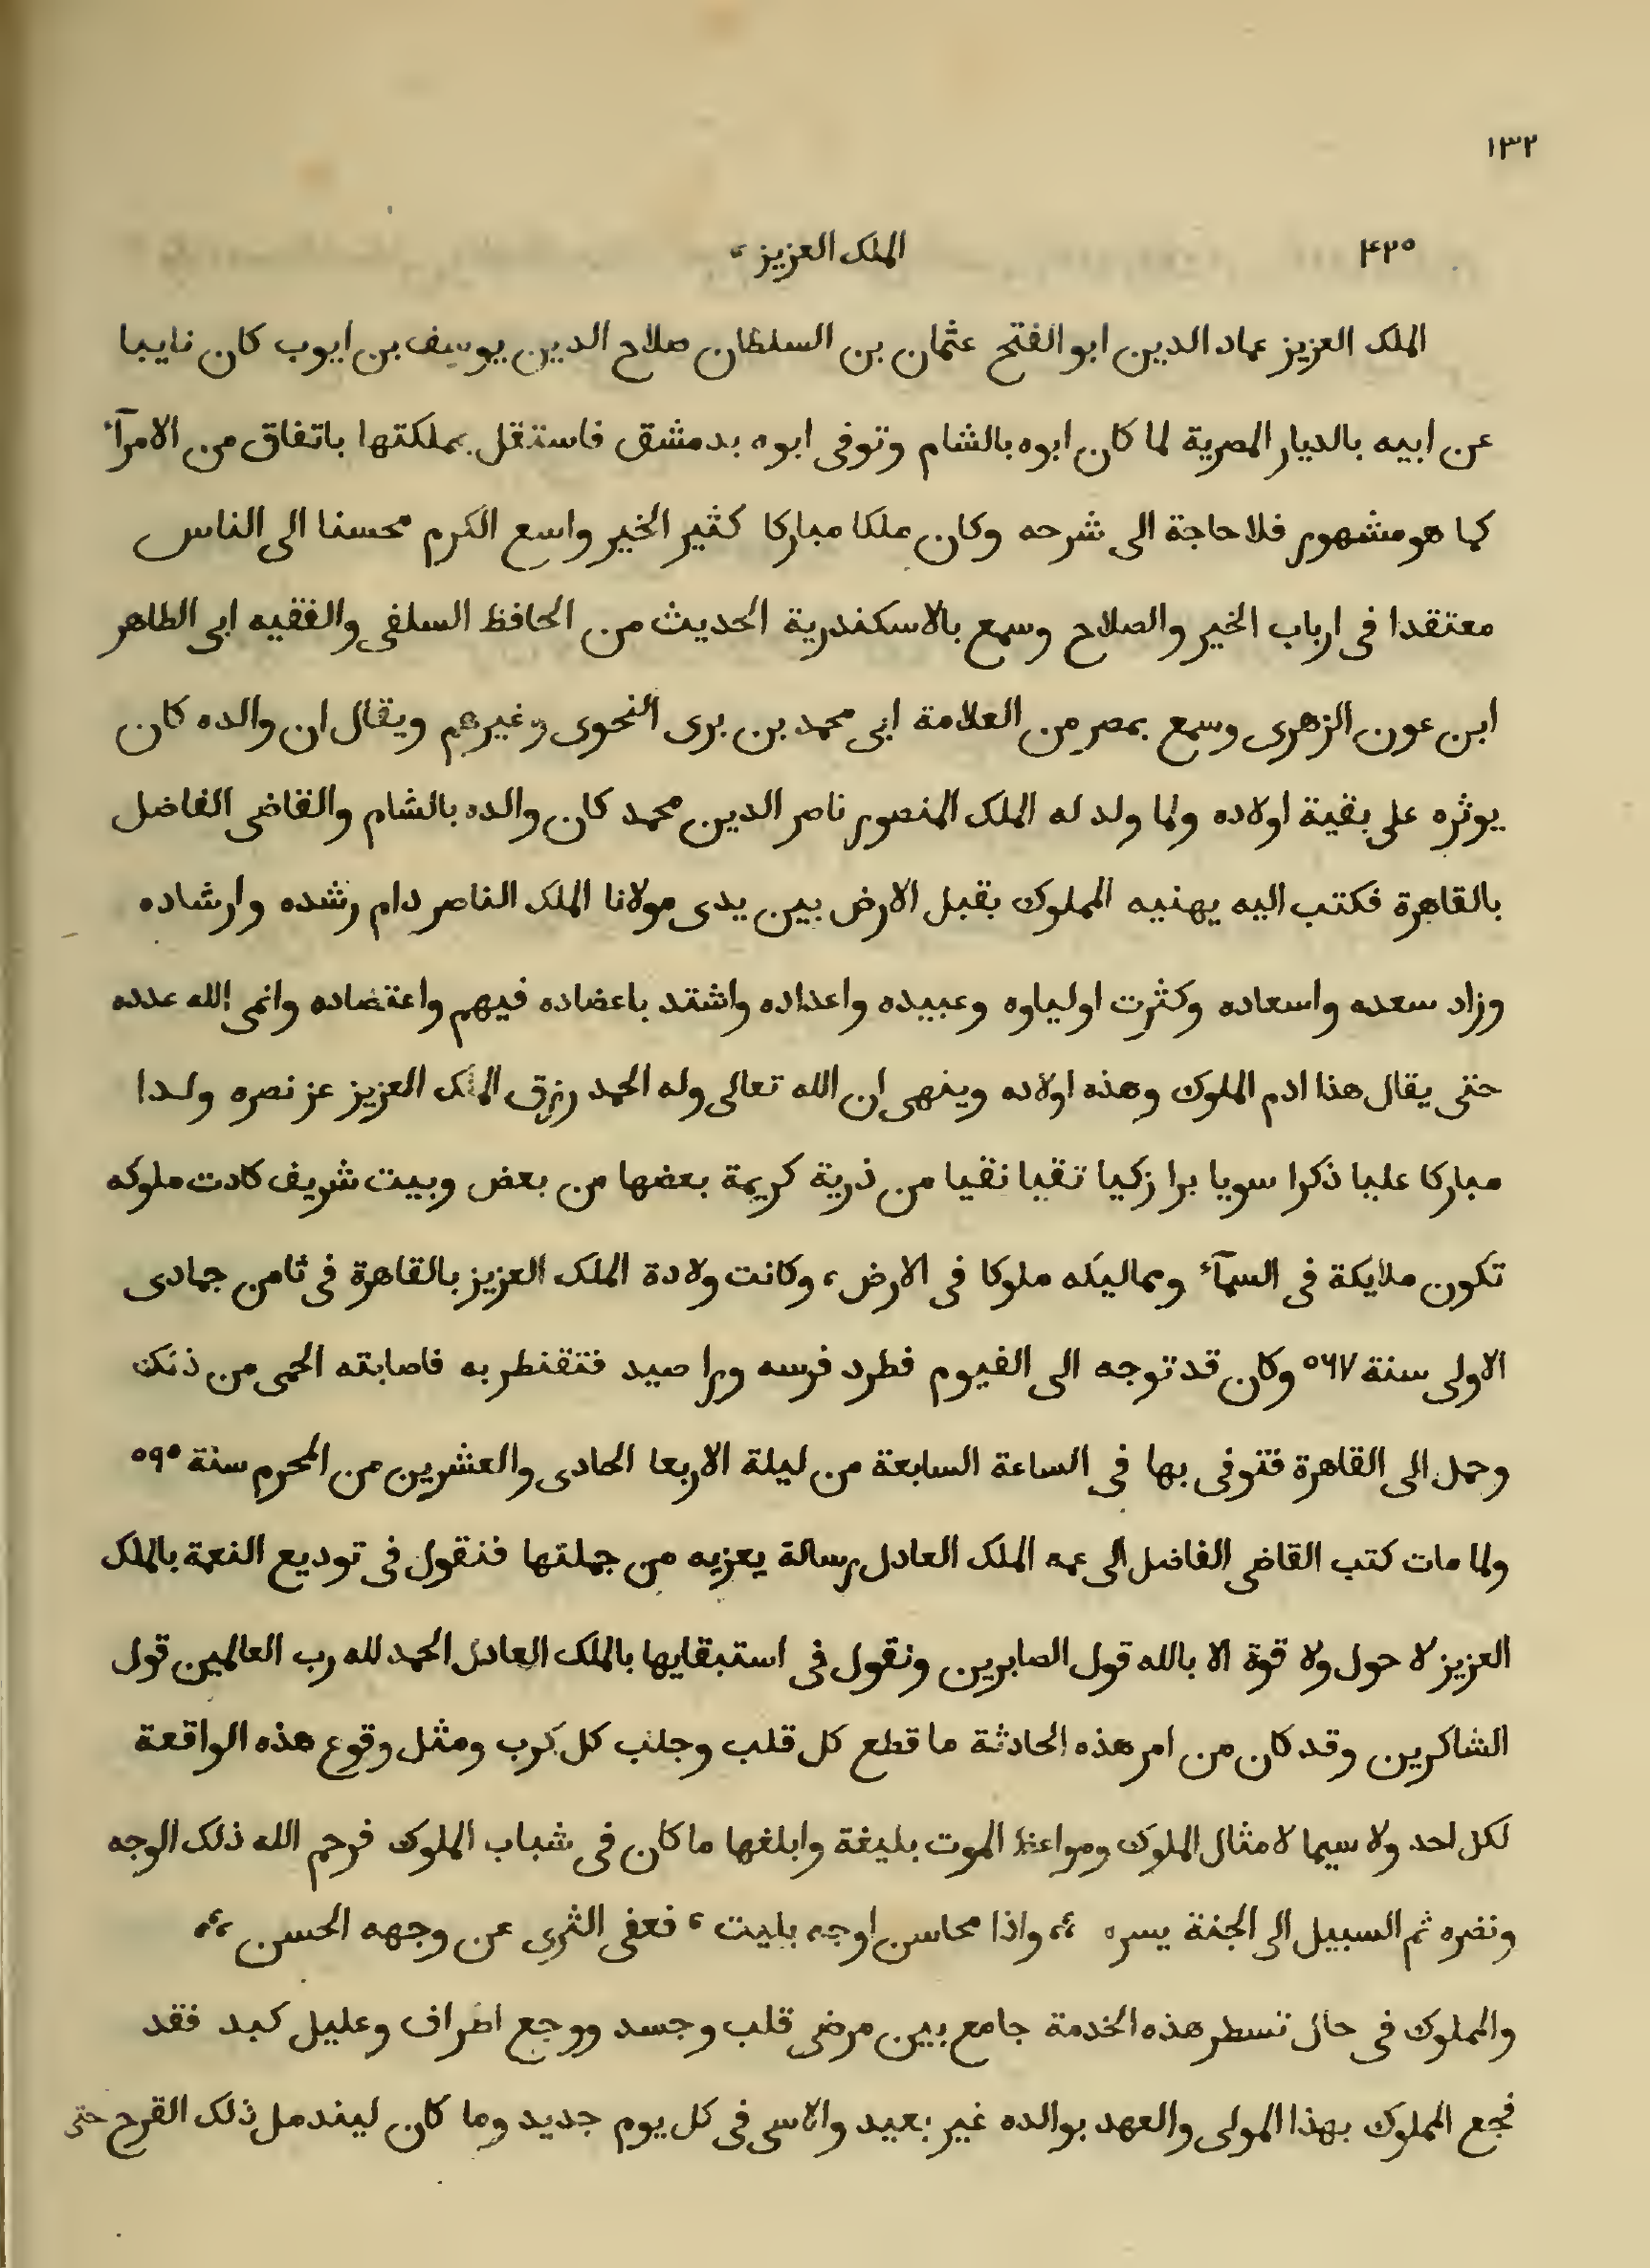 ١٣٢
٤٢٥ الملك العزيز ،
الملك العزيز عماد الدين ابو الفتح عثمان بن السلطان صلاح الدين يوسف بن ايوب كان نايبا
عن ابيه بالديار المصرية لما كان ابوه بالشام وتوفى ابوه بدمشق فاستقل بمملكتها باتفاق من الامرآء
كما هو مشهور فلا حاجة الى شرحه وكان ملكا مباركا كثير الخير واسع الكرم محسنا الى الناس
معتقدا فى ارباب الخير والصلاح وسمع بالاسكندرية الحديث من الحافظ السلفى والفقيه ابى الطاهر
ابن عون الزهرى وسمع بمصر من العلامة ابى محمد بن برى النحوى وغيرهم ويقال ان والده كان
يوثره على بقية اولاده ولما ولد له الملك المنصور ناصر الدين محمد كان والده بالشام والقاضى الفاضل
بالقاهرة فكتب اليه يهنيه المملوك بقبل الارض بين يدى مولانا الملك الناصر دام رشده وارشاده
وزاد سعده واسعاده وكثرت اولياوه وعبيده واعداده واشتد باعضاده فيهم واعتضاده وانمى الله عدده
حتى يقال هذا ادم الملوك وهذه اولاده وينهى ان الله تعالى وله الحمد رزق الملك العزيز عز نصره ولدا
مباركا عليا ذكرا سويا برا زكيا تقيا نقيا من ذرية كريمة بعضها من بعض وبيت شريف كادت ملوكه
تكون ملايكة فى السمآء ومماليكه ملوكا فى الارض ، وكانت ولادة الملك العزيز بالقاهرة فى ثامن جمادى
الاولى سنة ٥٦٧ وكان قد توجه الى الفيوم فطرد فرسه ورا صيد فتقنطر به فاصابته الحمى من ذلك
وحمل الى القاهرة فتوفى بها فى الساعة السابعة من ليلة الاربعا الحادى والعشرين من المحرم سنة ٥٩٥
ولما مات كتب القاضى الفاضل الى عمه الملك العادل رسالة يعزيه من جملتها فنقول فى توديع النعمة بالملك
العزيز لا حول ولا قوة الا بالله قول الصابرين ونقول فى استبقايها بالملك العادل الحمد لله رب العالمين قول
الشاكرين وقد كان من امر هذه الحادثة ما قطع كل قلب وجلب كل كرب ومثل وقوع هذه الواقعة
لكل احد ولا سيما لامثال الملوك ومواعظ الموت بليغة وابلغها ما كان فى شباب الملوك فرحم الله ذلك الوجه
ونضره ثم السبيل الى الجنة يسره ،، واذا محاسن اوجه بليت ، فعفى الثرى عن وجهه الحسن ،،
والمملوك فى حال تسطر هذه الخدمة جامع بين مرضى قلب وجسد ووجع اطراف وعليل كبد فقد
فجع المملوك بهذا المولى والعهد بوالده غير بعيد والاسى فى كل يوم جديد وما كان ليندمل ذلك القرح حتى